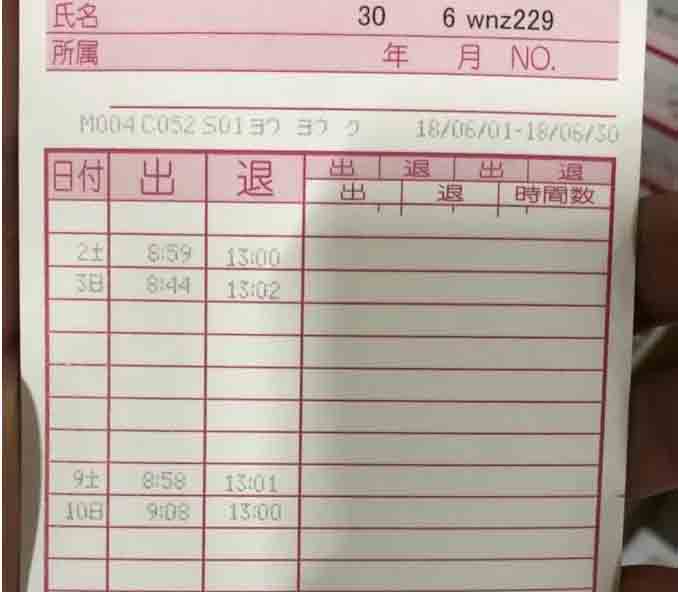 氏名 30 6 wnz229
所属 年 月 NO.
M004 C052 S01ヨウ ヨウ ク 18/06/01-18/06/30
日付 出 退 出 退 出 退
出 退 時間数
2土 8:59 13:00
3日 8:44 13:02
9土 8:58 13:01
10日 9:08 13:00